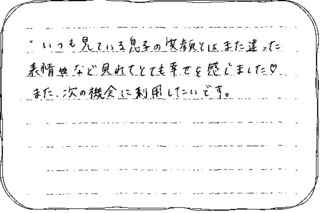 "いつも見ている息子の笑顔とはまた違った
表情etcなど見れてとても幸せを感じました♡
また、次の機会に利用したいです。